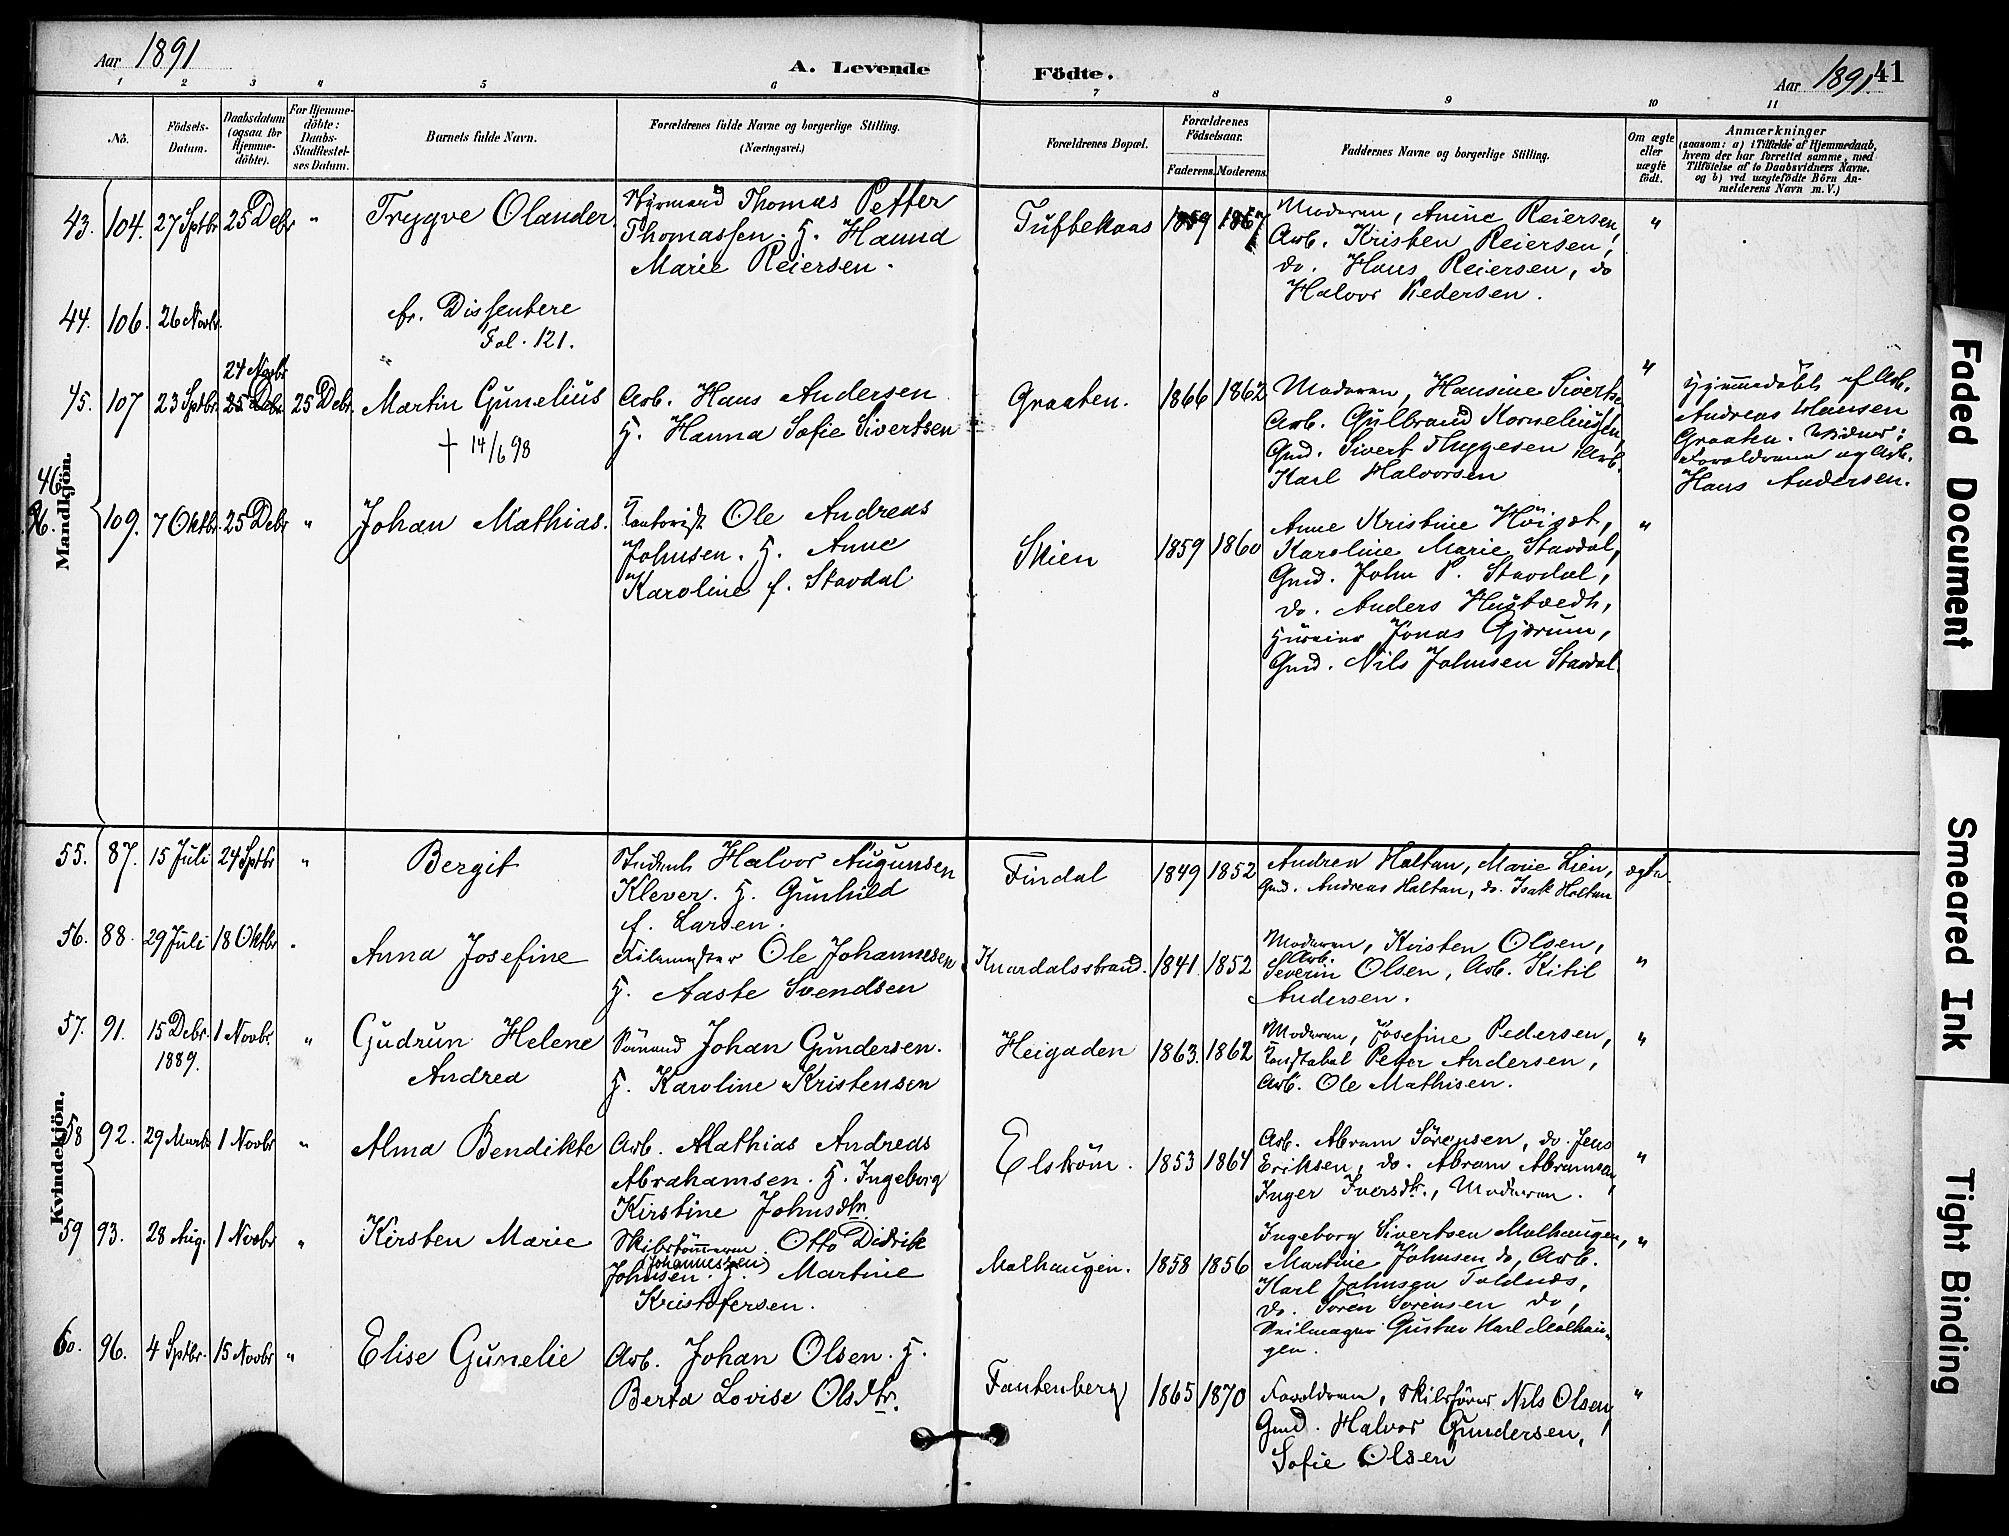 Aar 1891
A. Levende Födte.
Aar 1891. 41
1 2 3 4 5 6 7 8 9 10 11
No.
Födsels-Datum.
Daabsdatum (ogsaa for Hjemme-döbte).
For Hjemme-döbte: Daabs-Stadfæstel-ses Datum.
Barnets fulde Navn.
Forældrenes fulde Navne og borgerlige Stilling.
(Næringsvei.)
Forældrenes Bopæl.
Forældrenes Födselsaar.
Faderens. Moderens.
Faddernes Navne og borgerlige Stilling.
Om ægte eller uægte födt.
Anmærkninger
(saasom: a) i Tilfælde af Hjemmedaab,
hvem der har forrettet samme, med
Tilföielse af to Daabsvidners Navne.
og b) ved uægtefödte Börn An-
melderens Navn m. V.)
Mandkjön.
43. 104. 27 Sptbr 25 Debr " Trygve Olander.
Styrmand Thomas Petter
Thomassen. H. Hanna
Marie Reiersen.
Tuftekaas 1859 1867
Moderen, Anine Reiersen,
Arb. Kristen Reiersen,
do. Hans Reiersen, do
Halvor Pedersen.
"
44. 106. 26 Novbr.
fr. Dissentere
Fol. 121.
45. 107 23 Sptbr. 24 Novbr 25 Debr. 25 Debr. Martin Gunelius
† 14/6 98
Arb. Hans Andersen
H. Hanna Sofie Sivertsen
Graaten. 1866 1862
Moderen, Hansine Sivertse
Arb. Gulbrand Kornelius̄en,
Gmd. Sivert Thygesen Arb.
Karl Halvorsen
"
Hjemmedöbt af Arb.
Andreas Hansen
Graaten. Vidner:
Forældrene og Arb.
Hans Andersen.
46. 109. 7 Oktbr. 25 Debr " Johan Mathias.
Kontorist Ole Andreas
Johnsen. H. Anne
Karoline f. Stavdal
Skien 1859 1860
Anne Kristine Höiset,
Karoline Marie Stavdal,
Gmd. John P. Stavdal,
do. Anders Hustvedt,
Jonas Gjerum,
Gmd. Nils Johnsen Stavdal
"
Kvindekjön.
55. 87. 15 Juli 24 Sptbr " Bergit
Halvor Augunsen
Klever. H. Gunhild
f. Larsen.
Findal 1849 1852
Andrea Haltan, Marie Lien,
Gmd. Andreas Haltan, do. Isak Holtan
ægte.
56. 88. 29 Juli 18 Oktbr " Anna Josefine
Ole Johannesen
H. Aaste Svendsen
Knardalsstrand. 1841. 1852
Moderen, Kristen Olsen,
Arb.
Severin Olsen, Arb. Kitil
Andersen.
"
57. 91. 15 Debr. 1889. 1 Novbr. " Gudrun Helene
Andrea
Sömand Johan Gundersen.
H. Karoline Kristensen
Heigaden 1863. 1862
Moderen, Josefine Pedersen,
Konstabel Peter Andersen,
Arb. Ole Mathisen.
"
58 92. 29 Marts 1 Novbr " Alma Bendikte
Arb. Mathias Andreas
Abrahamsen. H. Ingeborg
Kirstine Johnsdtr
Elström. 1853 1864
Arb. Abram Sörensen, do. Jens
Eriksen, do. Abram Abramsen,
Inger Iversdtr., Moderen.
"
59 93. 28 Aug. 1 Novbr " Kirsten Marie
Skibstömmerm. Otto Didrik
(Johannessen)
Johnsen. H. Martine
Kristofersen.
Mælhaugen. 1858 1856
Ingeborg Sivertsen Mælhaugen,
Martine Johnsen do, Arb.
Karl Johnsen Toldnes,
do. Sören Sörensen do,
Seilmager Gustav Karl Mælhau-
gen.
"
60. 96. 4 Sptbr. 15 Novbr " Elise Gunelie
Arb. Johan Olsen. H.
Berta Lovise Olsdtr.
Fantenberg 1865 1870
Forældrene, Skibsförer Nils Olsen,
Gmd. Halvor Gundersen,
Sofie Olsen
"
Faded Document
Smeared Ink
Tight Binding